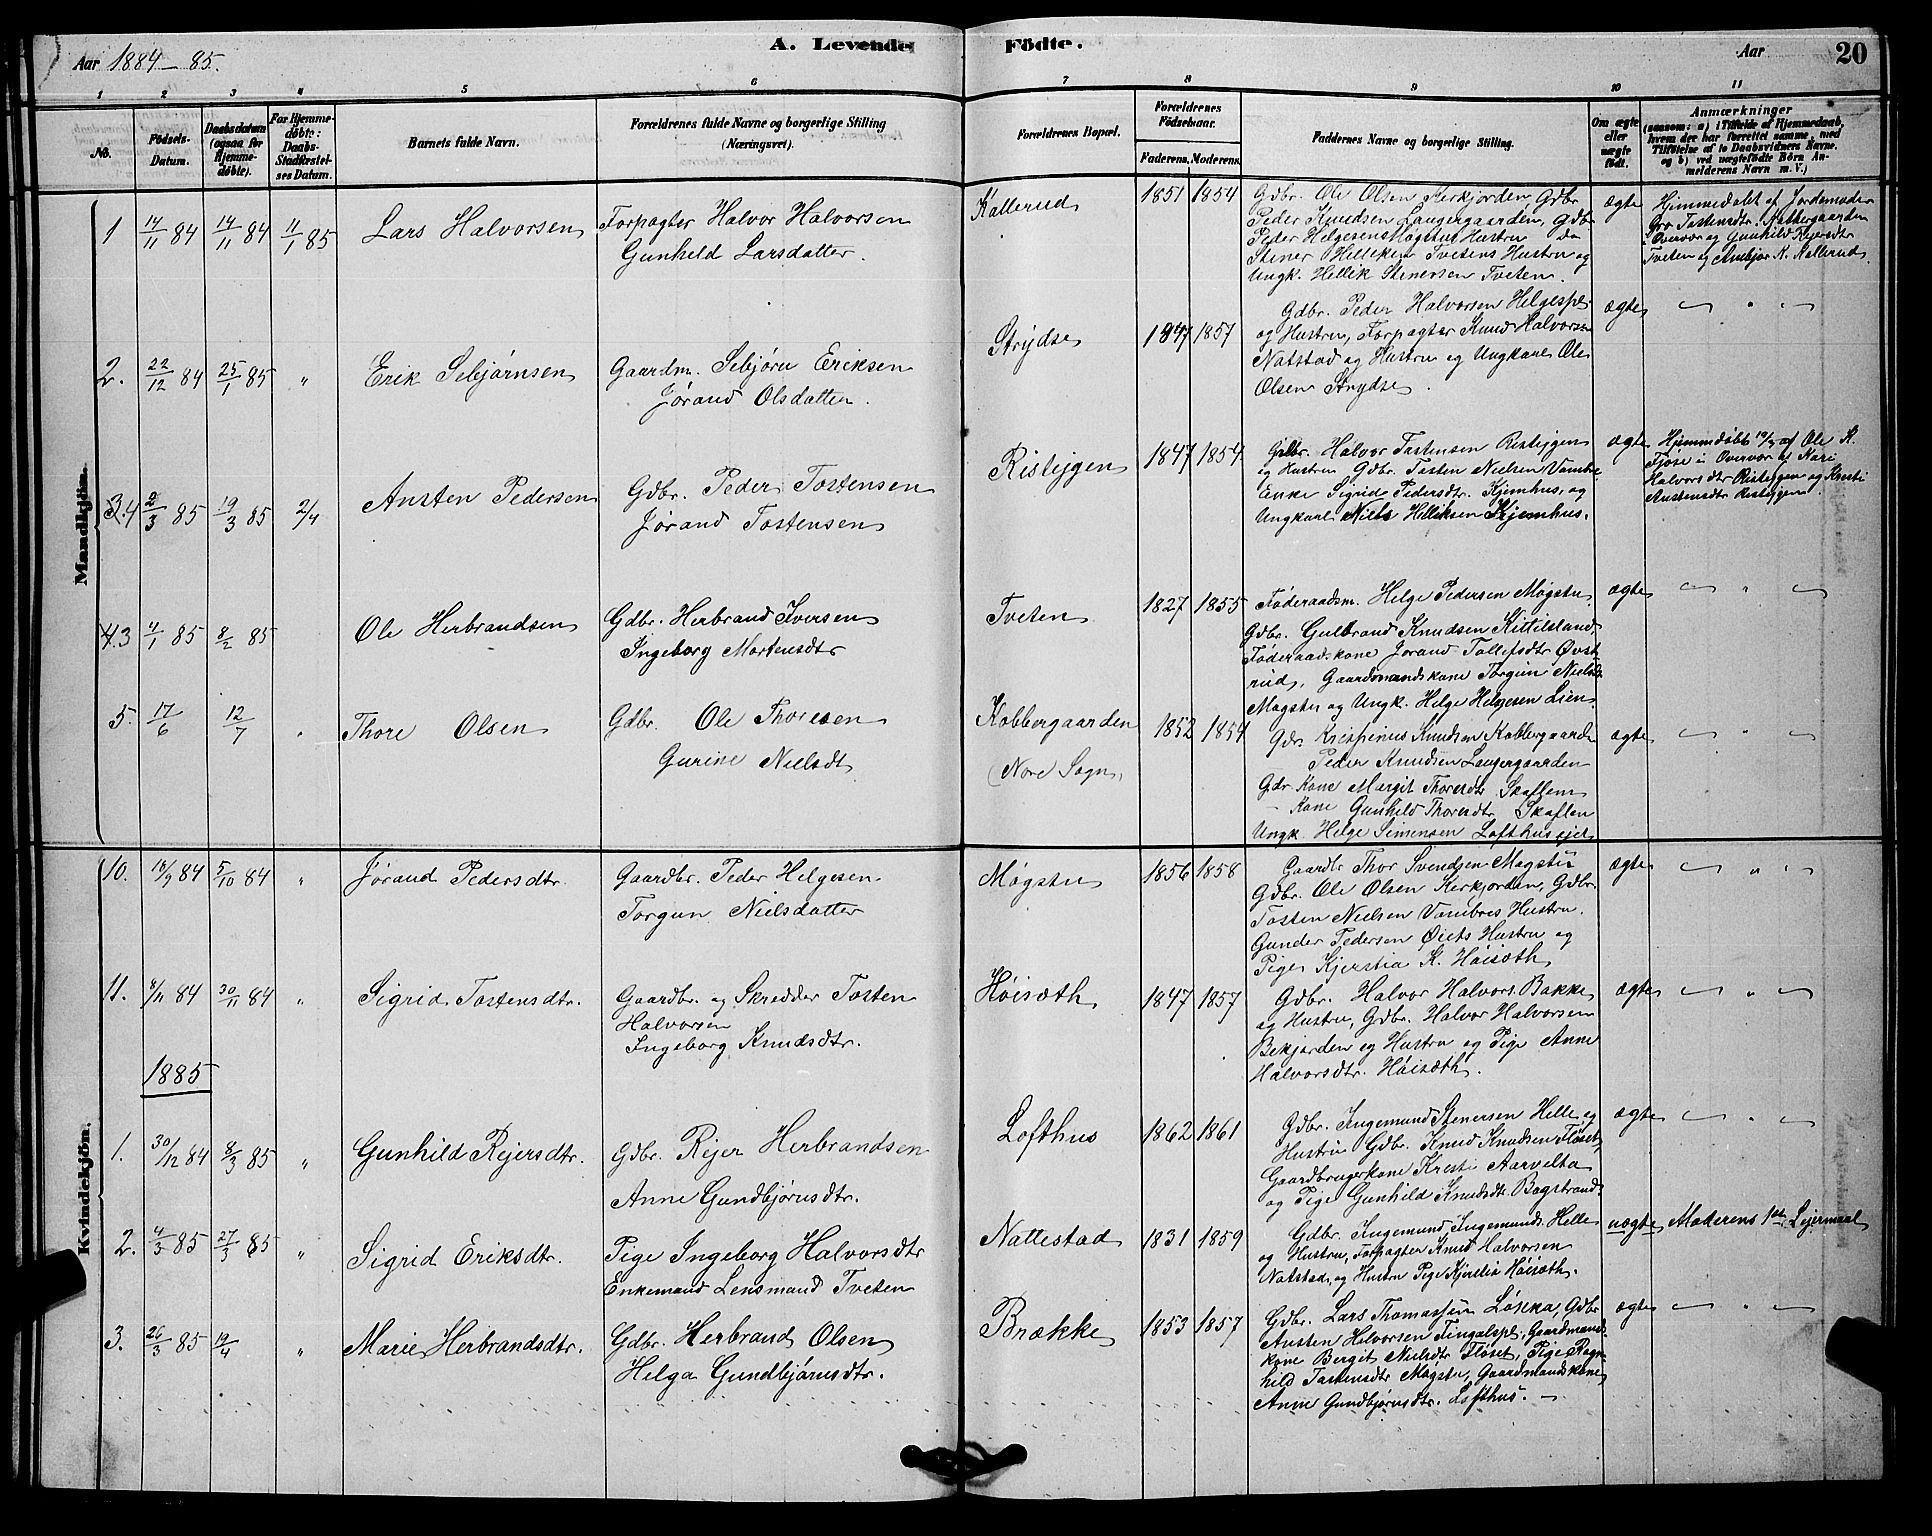 Aar 1884-85.
A. Levende Födte.
Aar
20
1 2 3 4 5 6 7 8 9 10 11
No.
Födsels-Datum.
Daabsdatum (ogsaa for Hjemmedöbte).
For Hjemmedöbte: Daabs-Stadfæstelses Datum.
Barnets fulde Navn.
Forældrenes fulde Navne og borgerlige Stilling (Næringsvei).
Forældrenes Bopæl.
Forældrenes Födselsaar.
Faderens. Moderens.
Faddernes Navne og borgerlige Stilling.
Om ægte eller uægte födt.
Anmærkninger
(saasom: a) i Tilfælde af Hjemmedaab,
hvem der har forrettet samme, med
Tilföielse af to Daabsvidners Navne.
og b) ved uægtefödte Börn An-
melderens Navn m. V.)
Mandkjön.
1 14/11 84 14/11 84 11/1 85 Lars Halvorsen
Forpagter Halvor Halvorsen
Gunhild Larsdatter.
Kallerud 1851 1854
Gdbr. Ole Olsen Kerkjorden, Gdbr
Peder Knudsen Laugergaarden, Gdbr
Peder Helgesen Møgstu Hustru da
Stener Helliksen Tvetens Hustru og
Ungk. Hellik Stenersen Tveten.
ægte
Hjemmedøbt af Jordemoder
Gro Tostensdtr.
Overvær og Gunhild Rejersdtr
Tveten og Anbjør K. Kallerud.
2. 22/12 84 25/1 85 " Erik Sebjørnsen
Gaardm. Sebjørn Eriksen
Jørand Olsdatter.
Strydse 1847 1857
Gdbr. Peder Halvorsen Helgespl.
og Hustru, Forpagter Knud Halvorsen
Natstad og Hustru og Ungkarl Ole
Olsen Strydse.
ægte — " —
3.4 2/3 85 19/3 85 2/4 Austen Pedersen
Gdbr. Peder Tostensen
Jørand Tostensen
Ristejgen 1847 1854
Gdbr. Halvor Tostensen Ristejgen
og Hustru Gdbr. Tosten Nielsen Vambre
Enke Sigrid Pedersdtr. Kjemhus, og
Ungkarl Niels Helliksen Kjemhus.
ægte
Hjemmedøbt 19/3 af Ole K.
Fjøse i Overvær af Kari
Halvorsdtr Ristejgen og Kristi
Austensdtr Ristejgen.
4.3 4/1 85 8/2 85 Ole Herbrandsen
Gdbr. Herbrand Iversen
Ingeborg Mortensdtr
Tveten 1827 1855
Føderaadsm. Helge Pedersen Møgstu
Gdbr. Gulbrand Knudsen Kittilsland,
Føderaadskone Jørand Tollefsdtr Øvst-
rud, Gaardmandskone Torgun Nielsdtr
Møgstu og Ungk. Helge Helgesen Lien.
ægte — " —
5. 17/6 12/7 " Thore Olsen
Gdbr. Ole Thoresen
Gurine Nielsdt
Kobbergaarden
(Nore Sogn)
1852 1854
Gdr. Krespinus Knudsen Kobbergaarden
Peder Knudsen Laugergaarden
Gdr Kone Margit Thoresdtr Skaflem
— Kone Gunhild Thoresdtr Skaflen
Ungk. Helge Simensen Lofthusejet
ægte — " —
Kvindekjön.
10. 13/9 84 5/10 84 " Jørand Pedersdtr.
Gaardbr. Peder Helgesen
Torgun Nielsdatter
Møgstu 1856 1858
Gaardbr Thor Svendsen Møgstu
Gdbr. Ole Olsen Kerkjorden, Gdbr.
Tosten Nielsen Vambres Hustru.
Gunder Pedersen Øiets Hustru og
Pige Kjerstia K. Høisæth
ægte — " —
11. 8/11 84 30/11 84 " Sigrid Tostensdtr.
Gaardbr. og Skredder Tosten
Halvorsen
Ingeborg Knudsdtr.
Høisæth 1847 1857
Gdbr. Halvor Halvors. Bakke
og Hustru, Gdbr. Halvor Halvorsen
Bekjorden og Hustru og Pige Anne
Halvorsdtr. Høisæth.
ægte — " —
1885
1. 30/12 84 8/3 85 " Gunhild Rejersdtr.
Gdbr. Rejer Herbrandsen
Anne Gundbjørnsdtr.
Lofthus 1862 1861
Gdbr. Ingemund Stenersen Helle og
Hustru Gdbr. Knud Knudsen Fløset,
Gaardbrugerkone Kristi Aarvelta
og Pige Gunhild Knudsdtr. Bogstrand.
ægte — " —
2. 4/3 85 27/3 85 " Sigrid Eriksdtr.
Pige Ingeborg Halvorsdtr
Enkemand Lensmand Tveten
Nattestad 1831 1859
Gdbr. Ingemund Ingemunds. Helle
og Hustru, Forpagter Knud Halvorsen
Natstad, og Hustru Pige Kjerstia Høisæth.
uægte Moderens 1ste Lejermaal
3. 26/3 85 19/4 " Marie Herbrandsdtr.
Gdbr. Herbrand Olsen
Helga Gundbjørnsdtr.
Brække 1853 1857
Gdbr. Lars Thomassen Løkka, Gdbr
Austen Halvorsen Tingalspl., Gaardmands-
kone Bergit Nielsdtr Fløset, Pige Ragn-
hild Tostensdtr Møgstu, Gaardmandskone
Anne Gundbjørnsdtr. Lofthus. —
ægte — " —